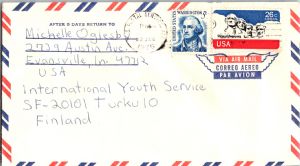 AFTER 5 DAYS RETURN TO
Michelle Oglesby
2739 Austin Ave
Evansville, In. 47712
USA
International Youth Service
SF-20101 Turku 10
Finland
WASHINGTON
26c
USA
VIA AIR MAIL
CORREO AEREO
PAR AVION